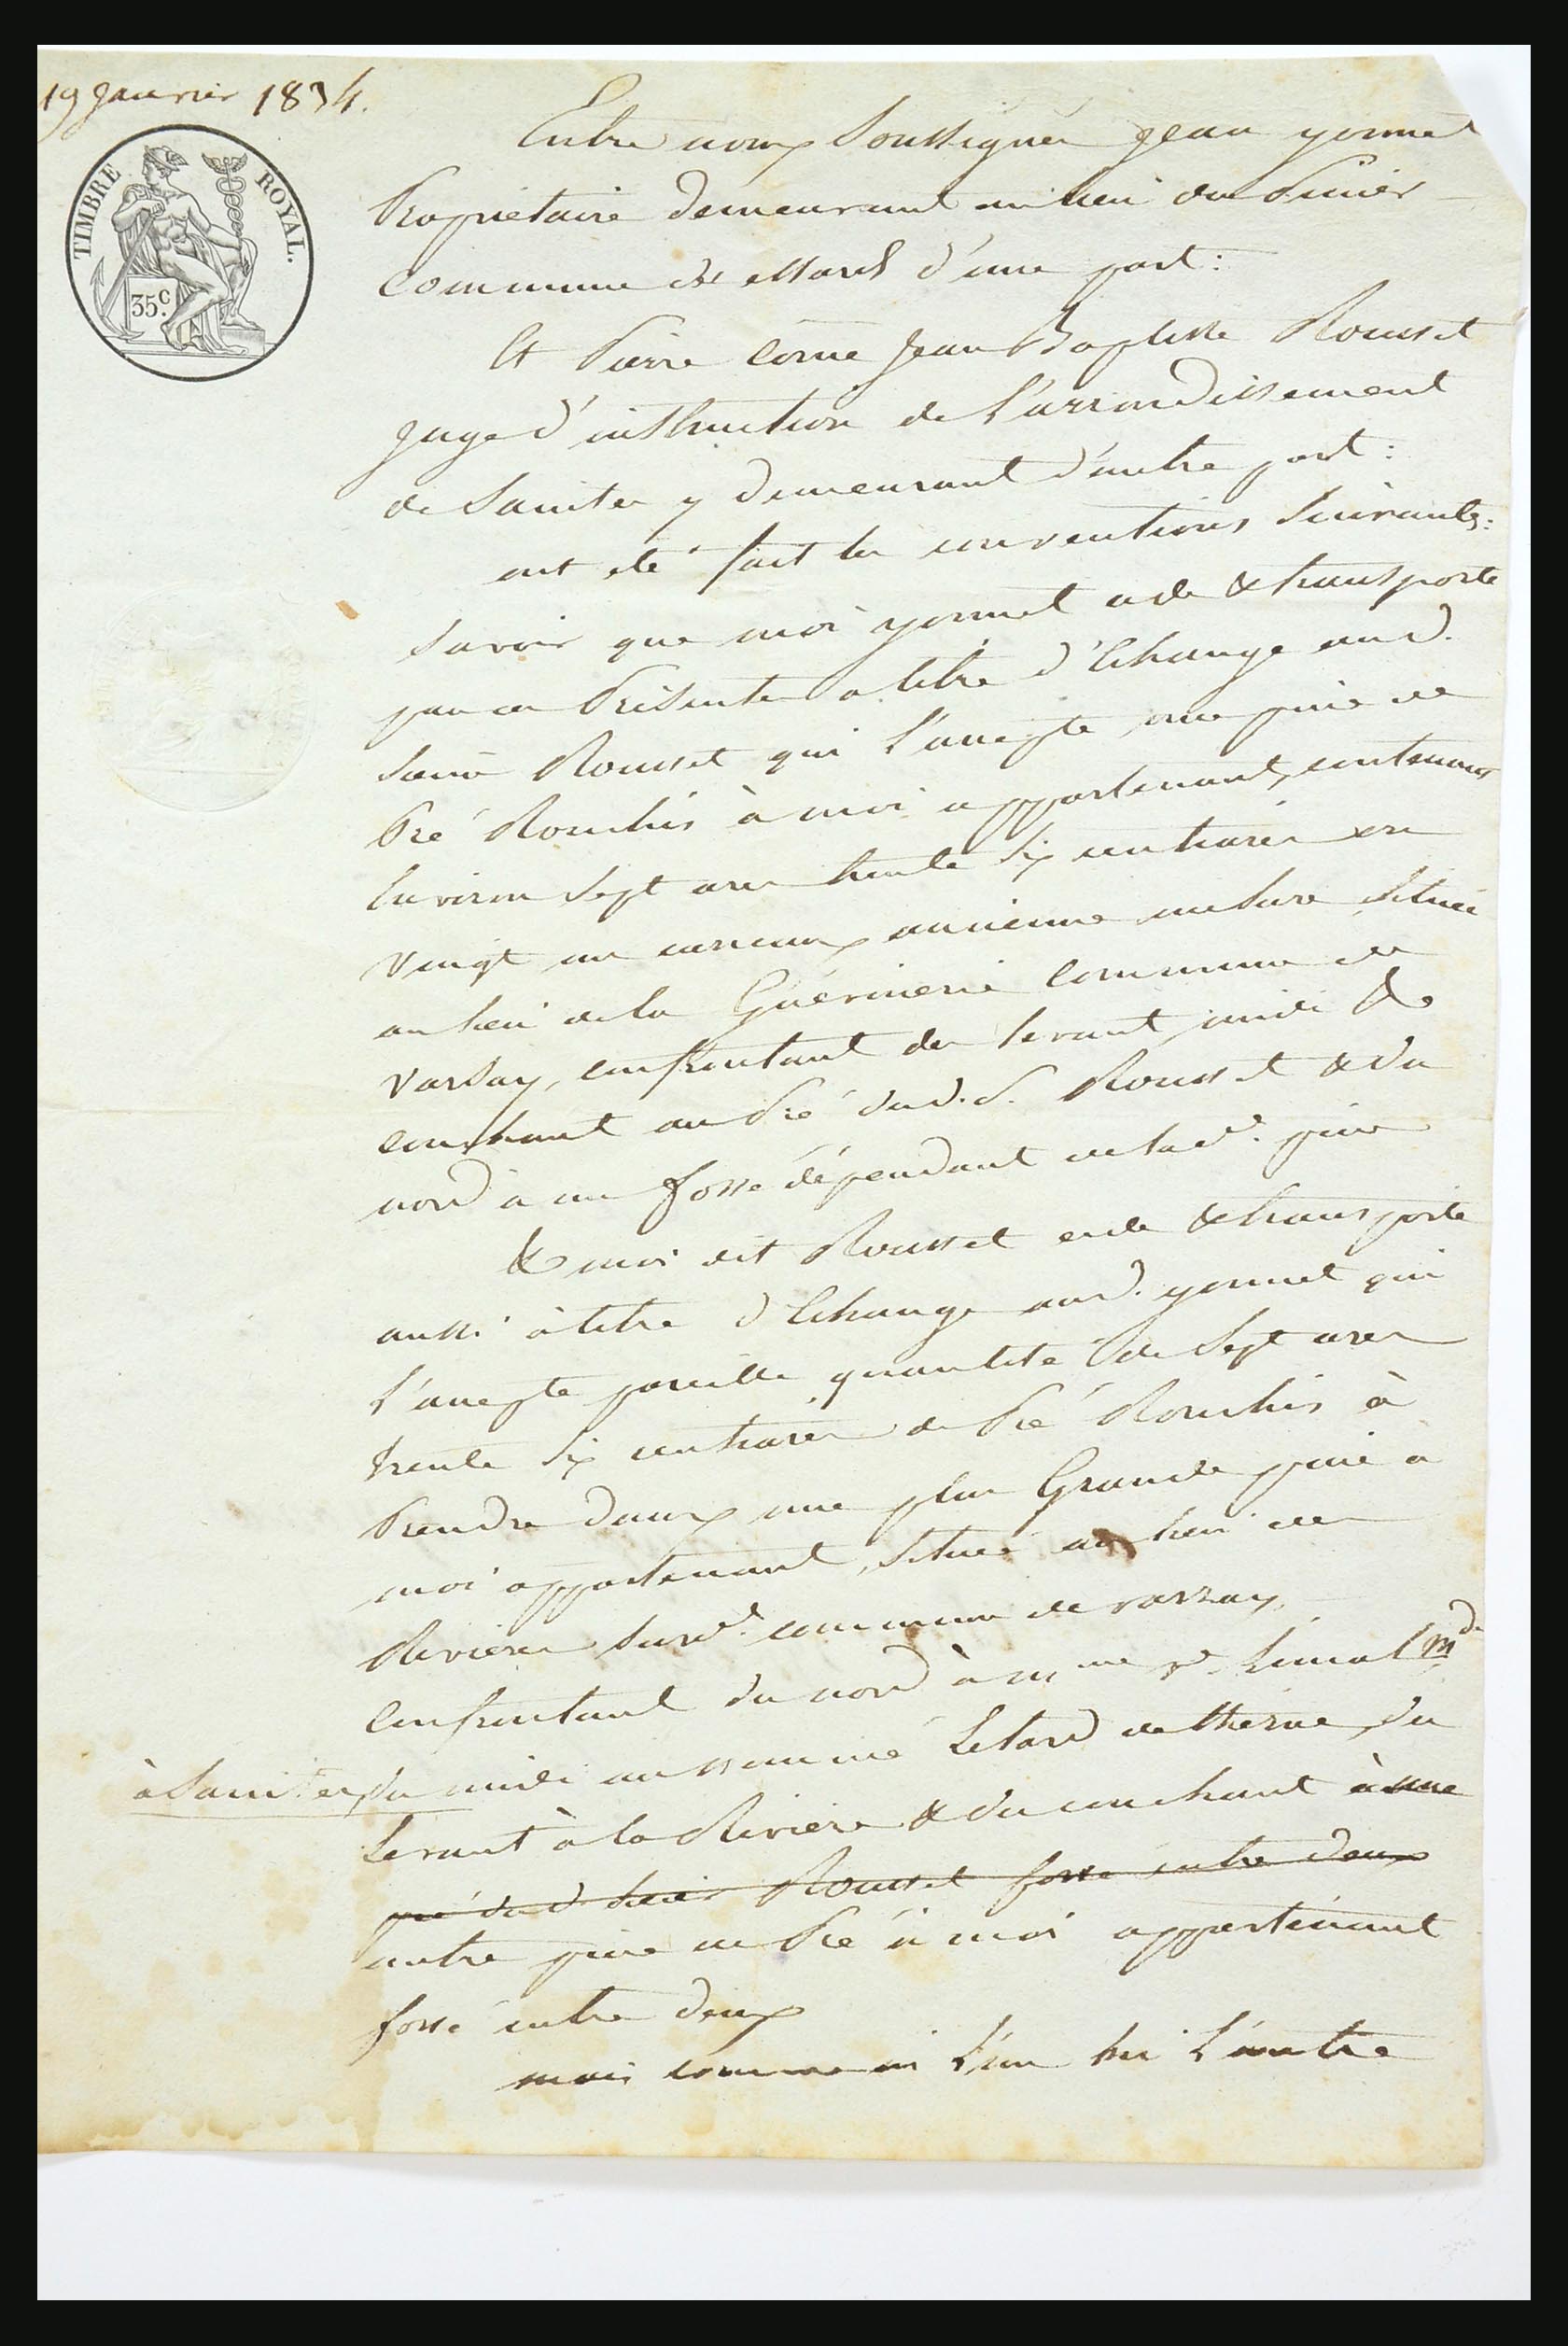 19 janvier 1834.
TIMBRE ROYAL.
35c.
Entre nous soussignés jean yonnet
Propriétaire demeurant au lieu du Pinier
commune des essards d'une part:
Et Pierre Come jean Baptiste Rousset
juge d'instruction de l'arrondissement
de Saintes y demeurant d'autre part:
ont été fait les conventions suivantes:
savoir que moi yonnet cède & transporte
par ces Présentes a titre d'Echange aud.
sieur Rousset qui l'accepte une pièce de
Pré Rouchis à moi appartenant, contenant
Environ sept ares trente six centiares ou
vingt un carreaux ancienne mesure située
au lieu de la Guérinerie commune de
varsay, confrontant des levant, midi &
couchant au Pré dud. S. Rousset & du
nord à un fossé dépendant de lad. pièce
& moi dit Rousset cède & transporte
aussi à titre d'Echange aud. yonnet qui
l'accepte pareille quantité de sept ares
trente six centiares de Pré Rouchis à
Prendre dans une plus Grande pièce a
moi appartenant, située au lieu des
Rivieres susd. commune de varzay,
Confrontant du nord à mme ve. md
à Saintes, du midi au nommé Letard de therac, du
Levant à la Riviere & du couchant à une
pré dud. sieur Rousset fossé entre deux
autre pièce de Pré à moi appartenant
fossé entre deux
mais comme ni l'un ni l'autre